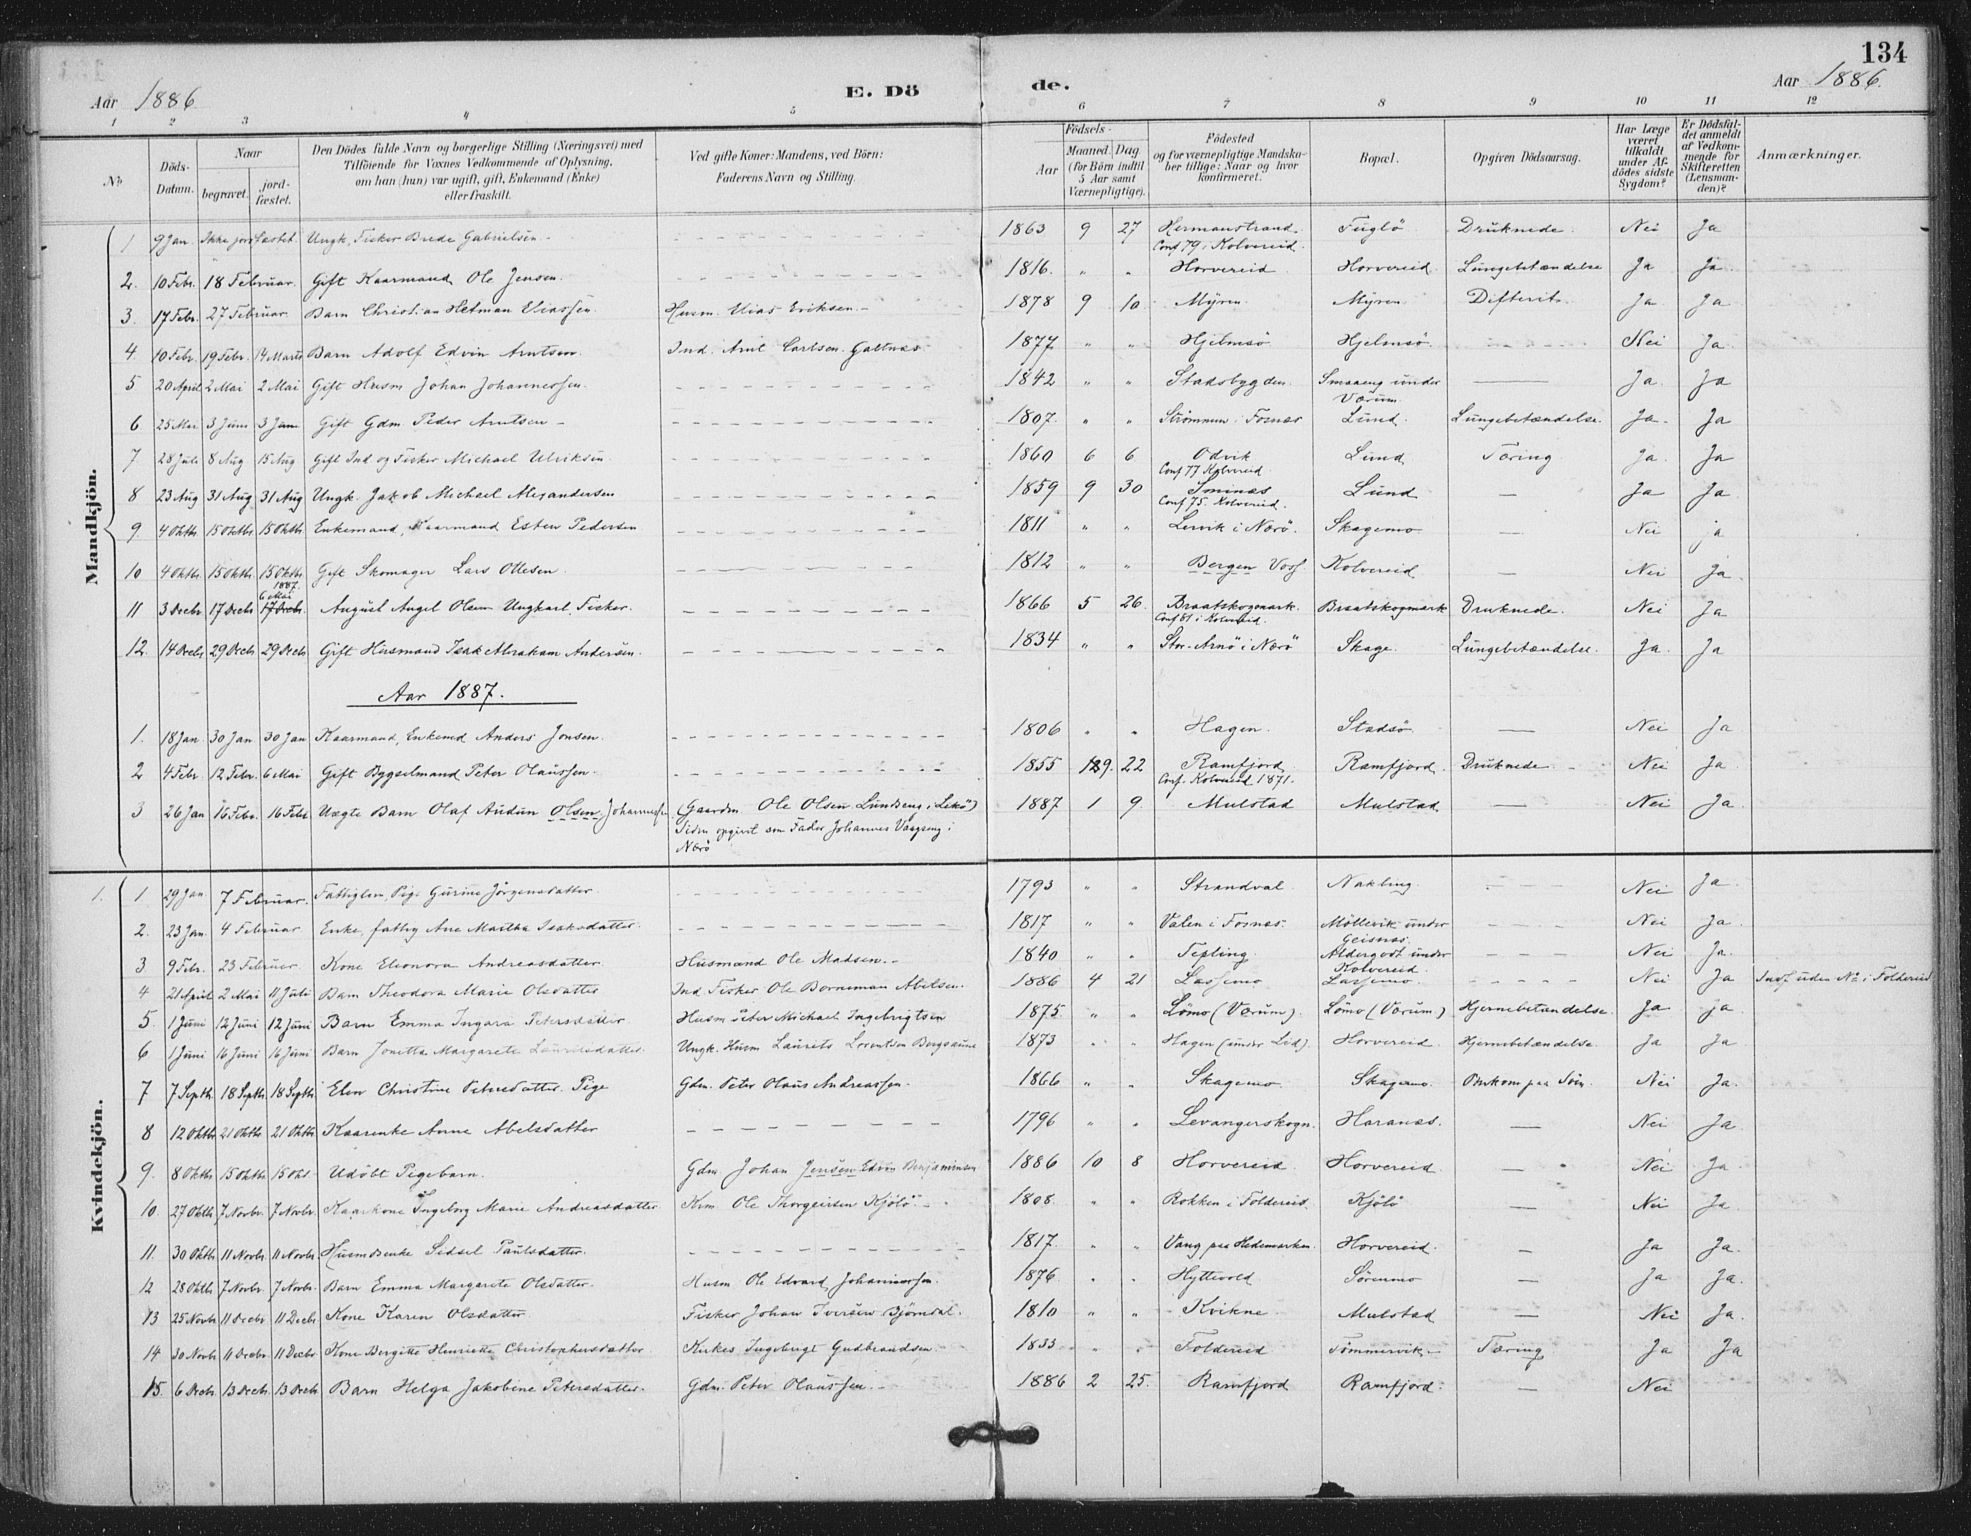 134
Aar 1886
E. Dö
de.
Aar 1886.
1 2 3 4 5 6 7 8 9 10 11 12
No
Döds-Datum.
Naar
begravet.
jord-fæstet.
Den Dödes fulde Navn og borgerlige Stilling (Næringsvei) med
Tilföiende for Voxnes Vedkommende af Oplysning,
om han (hun) var ugift, gift, Enkemand (Enke)
eller fraskilt.
Ved gifte Koner: Mandens, ved Börn:
Faderens Navn og Stilling.
Födsels-
Aar
Maaned. Dag
(for Börn indtil 5 Aar samt Værnepligtige).
Födested
og for værnepligtige Mandska-
ber tillige: Naar og hvor
konfirmeret.
Bopæl.
Opgiven Dödsaarsag.
Har Læge været tilkaldt under Af-dödes sidste Sygdom?
Er Dödsfal-det anmeldt af Vedkom-mende for Skifteretten (Lensman-den)?
Anmærkninger.
Mandkjön.
1 9 Jan. Ikke jordfæstet. Ungk. Fisker Brede Gabrielsen 1863 9 27 Hermanstrand. Conf 79 i Kolvereid. Fuglö Druknede. Nei Ja
2. 10 Febr. 18 Februar. Gift Kaarmand Ole Jensen. 1816. " " Horvereid Horvereid Lungebetændelse Ja Ja
3. 17 Febr. 27 Februar. Barn Christian Hetman Eliassen Husm. Elias Eriksen 1878 9 10 Myren Myren Difterit. Ja Ja
4. 10 Febr. 19 Febr. 14 Marts Barn Adolf Edvin Arntsen Ind. Arnt Carlsen Gattnæs 1877 " " Hjelmsö Hjelmsö. Nei Ja.
5 20 April 2 Mai 2 Mai Gift Husm Johan Johannessen. 1842 " " Stadsbygden. Smaaeng under Værum. Ja. Ja
6. 25 Mai 3 Juni 3 Juni Gift Gdm. Peder Arntsen 1807. " " Strömmen i Fosnæs Lund. Lungebetændelse. Ja. Ja
7 28 Juli 8 Aug 15 Aug Gift Ind og Fisker Michael Ulriksen 1860 6 6 Odvik Conf 77 Kolvereid. Lund Tæring Ja. Ja
8 23 Aug 31 Aug 31 Aug Ungk. Jakob Michael Alexandersen 1859 9 30 Conf 75. Kolvereid. Lund Ja Ja
9. 4 Oktbr 15 Oktbr 15 Oktbr Enkemand, Kaarmand Esten Pedersen 1811 " " Lervik i Nærö. Skagemo Nei ja
10 4 Oktbr 15 Oktbr 15 Oktbr Gift Skomager Lars Ottesen. 1812 " " Bergen Voss Kolvereid Nei Ja.
1887 6 Mai
11 3 Decbr 17 Decbr 17 Decbr. August Angel Olsen Ungkarl, Fisker. 1866 5 26. Braatskogmark. Conf 81 i Kolvereid. Braatskogmark Druknede. Nei Ja
12. 14 Decbr 29 Decbr 29 Decbr Gift Husmand Isak Abraham Andersen. 1834 " " Stor-Arnö i Nærö Skage. Lungebetændelse. Ja. Ja
Aar 1887.
1. 18 Jan. 30 Jan 30 Jan Kaarmand, Enkemd Anders Jonsen. 1806 " " Hagen. Stadsö. Nei Ja
2 4 Febr. 12 Febr. 6 Mai Gift Bygselmand Peter Olaussen. 1855 9. 22 Ramfjord Conf. Kolvereid 1871. Ramfjord Druknede Nei Ja.
3 26 Jan 16 Febr. 16 Febr Uægte Barn Olaf Audun Olsen Johannessen (Gaarden Ole Olsen Lundseng i Lekö) 1887 1 9. Mulstad Mulstad Nei Ja.
Siden opgivet som Fader Johannes Vaagseng i
Nærö
Kvindekjön.
1. 1 29 Jan. 7 Februar. Fattiglem, Pige Gurine Jörgensdatter 1793 " " Strandval. Nakling. Nei Ja.
2. 23 Jan. 4 Februar Enke, fattig Ane Martha Isaksdatter 1817 " " Valen i Fosnæs. Möllevik under Geisnæs. Nei Ja.
3 9 Febr. 23 Februar Kone Eleonora Andreasdatter Husmand Ole Madsen. 1840 " " Tepling Aldergodt under Kolvereid. Nei Ja.
4 21 April 2 Mai 11 Juli Barn Theodora Marie Olsdatter Ind Fisker Ole Borneman Abelsen. 1886 4 21 Lassemo Lassemo. Nei Ja Indf. uden No i Foldereid
5. 1 Juni 12 Juni 12 Juni Barn Emma Ingara Petersdatter Husm Peter Michael Ingebrigtsen 1875 " " Lömo (Værum). Lömo (Værum) Hjernebetændelse. Ja ja
6 1 Juni 16 Juni 16 Juni Barn Jonetta Margarete Lauritsdatter. Ungk. Husm Laurits Lorentsen Bergsaune 1873 " " Hagen (under Lid). Horvereid. Hjernebetændelse. Ja Ja
7 7 Septbr 18 Septbr 18 Septbr Elen Christine Petersdatter Pige Gdm. Peter Olaus Andreassen. 1866 " " Skagemo Skagemo. Omkom paa Söen. Nei Ja.
8 12 Oktbr 21 Oktbr 21 Oktbr Kaarenke Anne Abelsdatter 1796 " " Levangerskogn. Haranæs. Nei Ja.
9. 8 Oktbr 15 Oktbr 15 Okt. Udöbt Pigebarn. Gdm Johan Jensen Edvin Benjaminsen 1886 10 8 Horvereid. Horvereid. Nei Ja.
10. 27 Oktbr 7 Novbr. 7 Novbr. Kaarkone Ingeborg Marie Andreasdatter Krm Ole Thorgeirsen Kjölö. 1808 " " Rokken i Foldereid. Kjölö Nei Ja.
11. 30 Oktbr 11 Novbr. 11 Novbr. Husmdsenke Sidsel Paulsdatter. 1817. " " Vang paa Hedemarken. Horvereid. Ja Ja.
12 28 Oktbr 7 Novbr. 7 Novbr. Barn Emma Margarete Olsdatter. Husm Ole Edvard Johannessen. 1876 " " Hyttevold Sörenmo Ja Ja.
13 25 Novbr 11 Decbr 11 Decbr Kone Karen Olsdatter Fisker Johan Iversen Björndal. 1810 " " Kvikne Mulstad Nei Ja.
14 30 Novbr 11 Decbr. 11 Decbr Kone Bergitte Henriette Christophersdatter Ingebrigt Gudbrandsen 1833 " " Foldereid Tömmervik. Tæring Ja Ja
15. 6 Decbr 13 Decbr. 13 Decbr Barn Helga Jakobine Petersdatter. Gdm. Peter Olaussen. 1886 2 25. Ramfjord Ramfjord. Nei